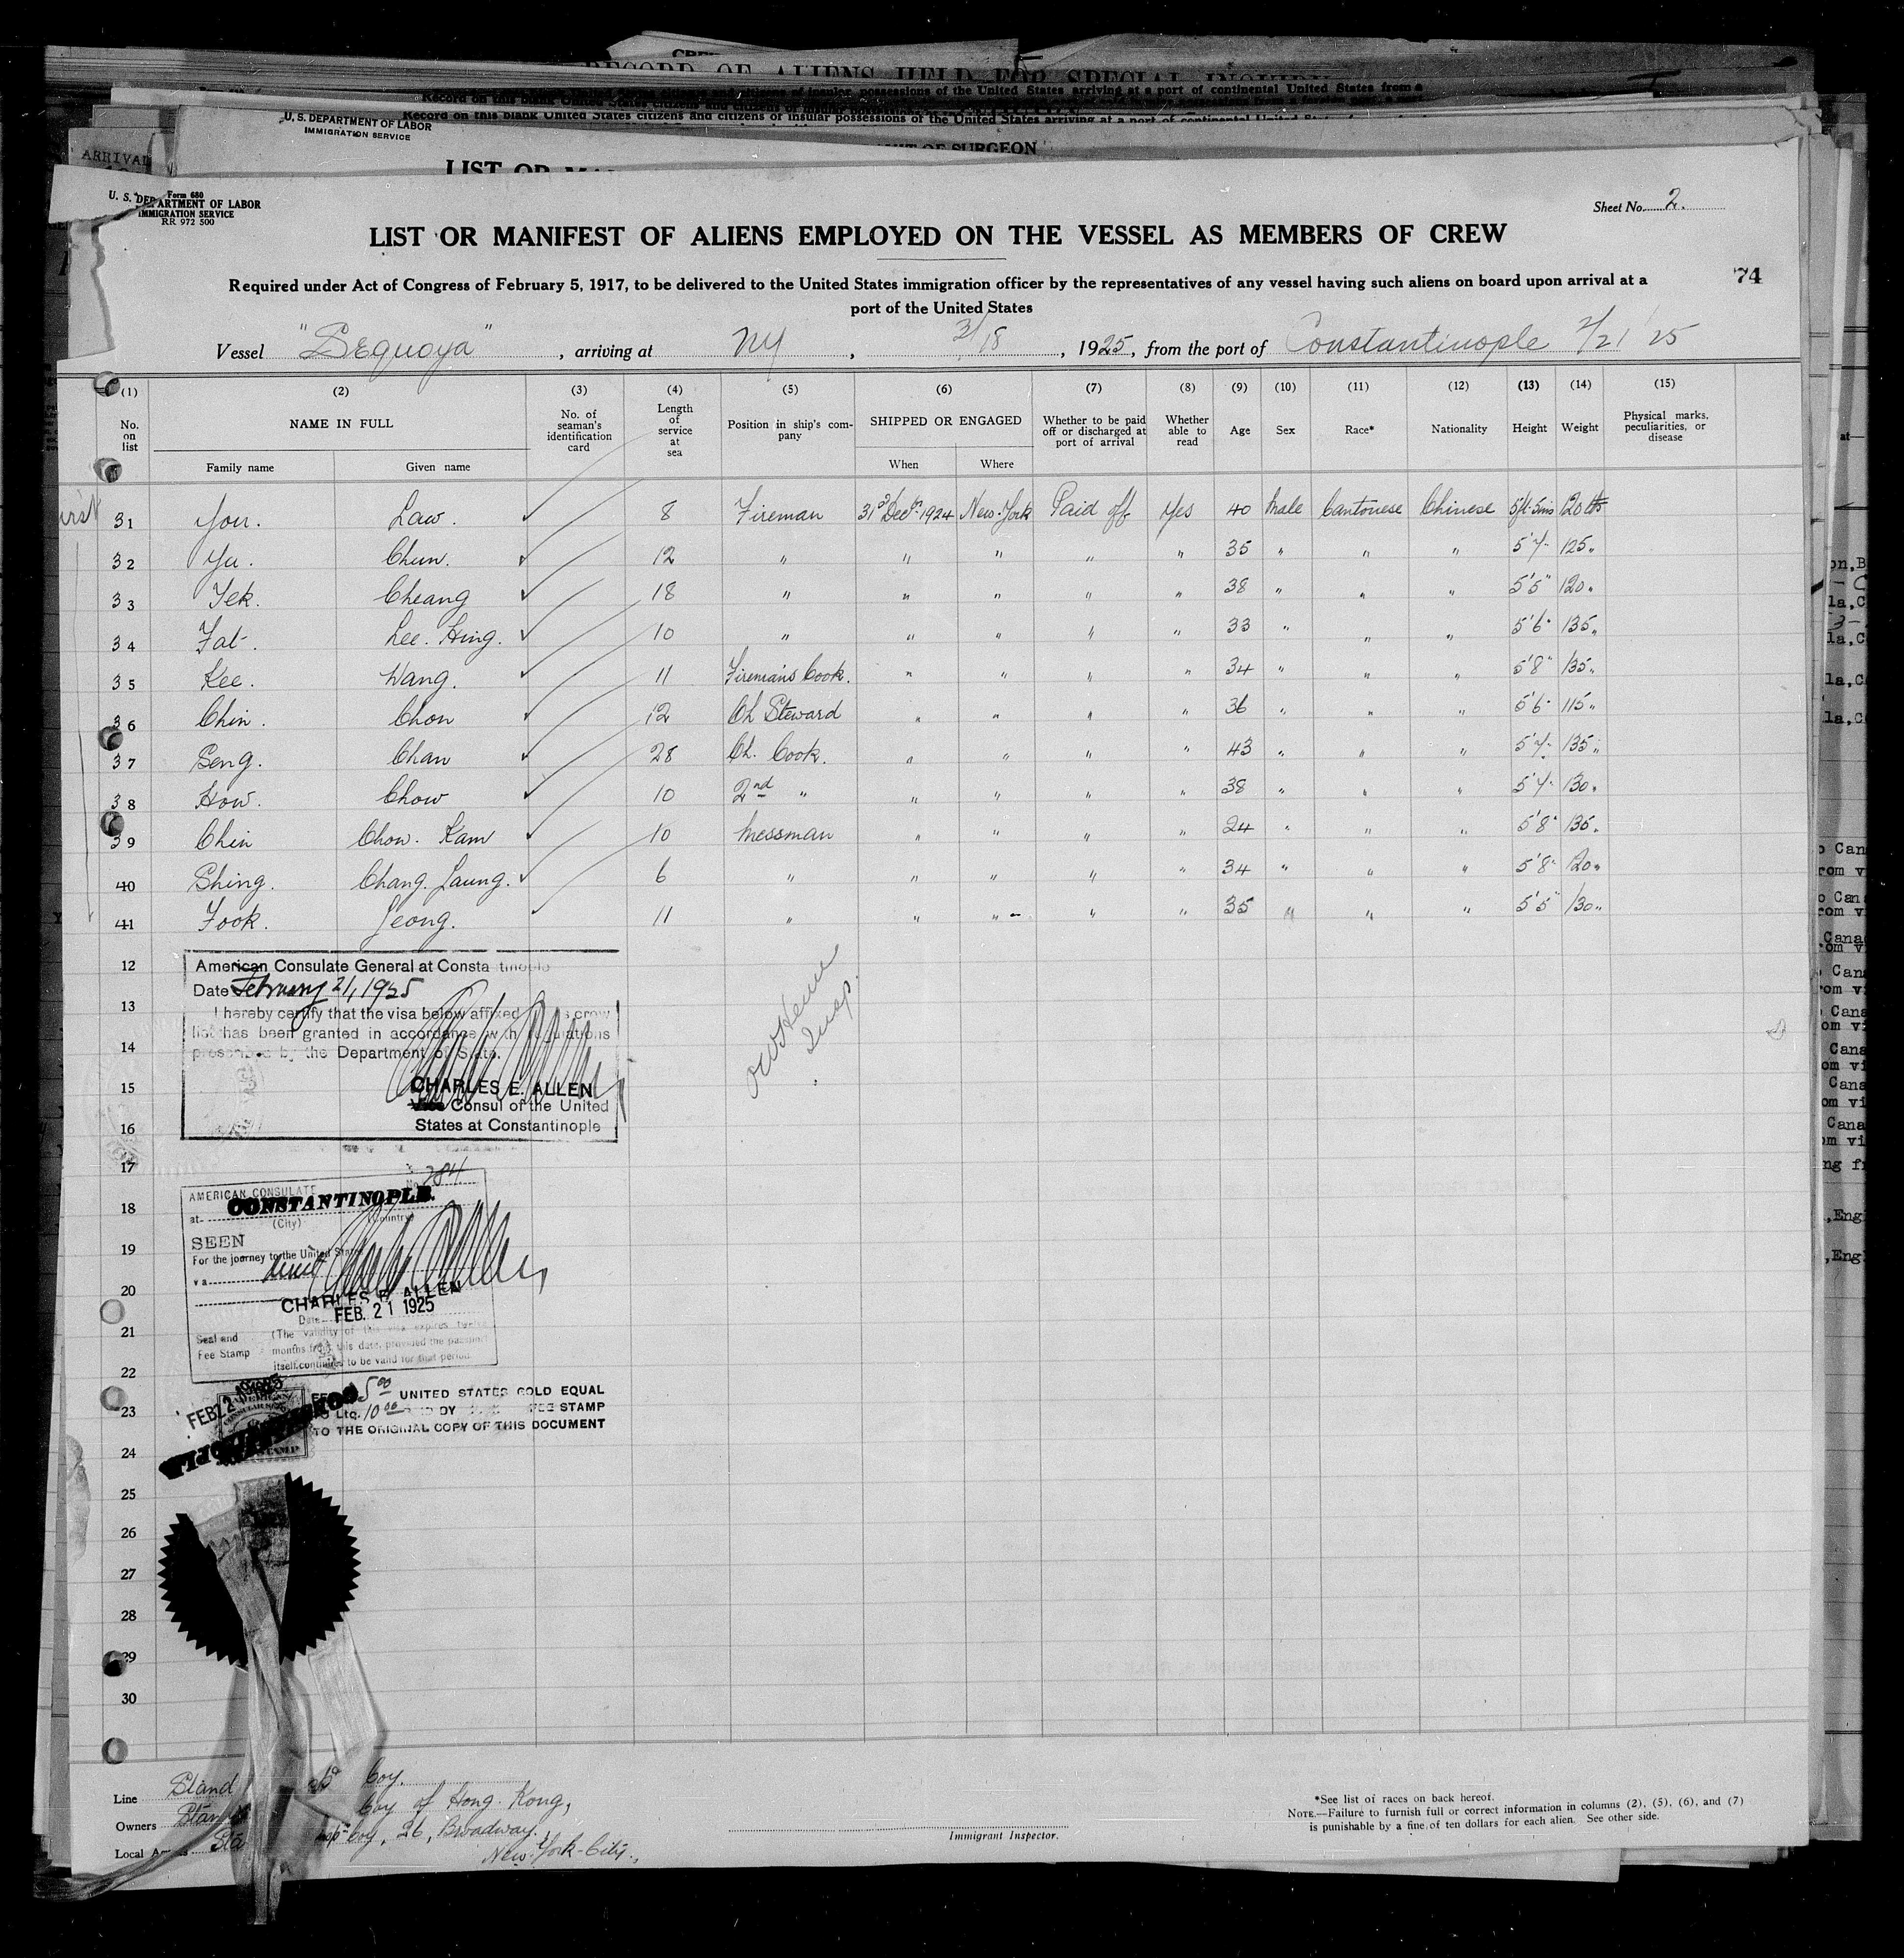 RECORD OF ALIENS HELD FOR SPECIAL INQUIRY
Record on this blank United States citizens and citizens of insular possessions of the United States arriving at a port of continental United States from a
ARRIVAL
U. S. DEPARTMENT OF LABOR
IMMIGRATION SERVICE
OF SURGEON
LIST OR
Form 680
U. S. DEPARTMENT OF LABOR
IMMIGRATION SERVICE
RR 972 500
Sheet No. 2.
LIST OR MANIFEST OF ALIENS EMPLOYED ON THE VESSEL AS MEMBERS OF CREW
74
Required under Act of Congress of February 5, 1917, to be delivered to the United States immigration officer by the representatives of any vessel having such aliens on board upon arrival at a
port of the United States
Vessel "Sequoya", arriving at NY, 3/18, 1925, from the port of Constantinople 2/21/25
(1) (2) (3) (4) (5) (6) (7) (8) (9) (10) (11) (12) (13) (14) (15)
No. on list NAME IN FULL No. of seaman's identification card Length of service at sea Position in ship's company SHIPPED OR ENGAGED Whether to be paid off or discharged at port of arrival Whether able to read Age Sex Race* Nationality Height Weight Physical marks, peculiarities, or disease
Family name Given name When Where
31 You. Law. 8 Fireman 31st Decr. 1924 New-York Paid off Yes 40 Male Cantonese Chinese 5ft. 5ins 120 lbs
32 Yu. Chun. 12 " " " " " 35 " " " 5'7" 125 "
33 Yek. Cheang 18 " " " " " 38 " " " 5'5" 120 "
34 Fat. Lee. Hing. 10 " " " " " 33 " " " 5'6" 135 "
35 Kee. Wang. 11 Fireman's Cook. " " " " 34 " " " 5'8" 135 "
36 Chin. Chon 12 Ch Steward " " " " 36 " " " 5'6" 115 "
37 Seng. Chan 28 Ch. Cook. " " " " 43 " " " 5'7" 135 "
38 How. Chow 10 2nd " " " " " 38 " " " 5'7" 130 "
39 Chin Chow. Kam 10 Messman " " " " 24 " " " 5'8" 135 "
40 Shing. Chang. Laung. 6 " " " " " 34 " " " 5'8" 120 "
41 Fook. Leong. 11 " " " " " 35 " " " 5'5" 130 "
12
American Consulate General at Constantinople
Date February 21, 1925
13
I hereby certify that the visa below affixed s crew
list has been granted in accordance with regulations
14
prescribed by the Department of State.
15
CHARLES E. ALLEN
Vice Consul of the United
16
States at Constantinople
Insp.
17
No. 284
AMERICAN CONSULATE
18
at CONSTANTINOPLE.
(City) (Country)
19
SEEN
For the journey to the United States
via direct
20
CHARLES E. ALLEN
Date FEB. 21 1925
21
Seal and Fee Stamp
(The validity of this visa expires twelve
months from this date, provided the passport
itself continues to be valid for that period
22
5.00 UNITED STATES GOLD EQUAL
23
Ltq. 10.00 BY FEE STAMP
TO THE ORIGINAL COPY OF THIS DOCUMENT
CONSTANTINOPLE
24
25
26
27
28
29
30
Line Stand Coy.
Owners Stan Coy of Hong. Kong,
Local Agents Sta Coy, 26, Broadway.,
New-York-City.,
Immigrant Inspector.
*See list of races on back hereof.
NOTE.—Failure to furnish full or correct information in columns (2), (5), (6), and (7)
is punishable by a fine of ten dollars for each alien. See other side.